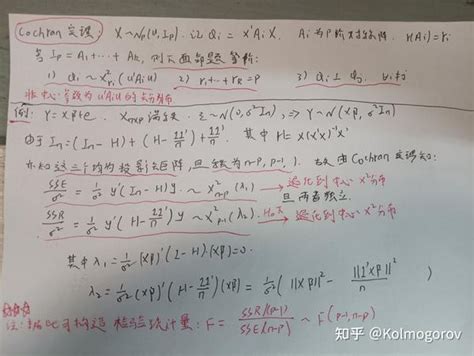 Cochran 定理: X~Np(μ,Ip) 记 Qi = X'AiX. Ai为P阶对称阵, r(Ai)=ri
当 Ip = A1+…+Ak, 则下面命题等价:
1) Qi ~ χ²ri(μ'Aiμ) 2) r1+…+rk=p 3) Qi ⊥ Qj, ∀i≠j
非中心参数为μ'Aiμ的卡方分布
例: Y=Xβ+e. Xn×p 满秩, ε~N(0,σ²In), ⇒ Y~N(Xβ, σ²In)
由于 In=(In-H)+(H-11'/n)+11'/n, 其中 H=X(X'X)⁻¹X'
这三个均为投影矩阵, 且秩为n-p, p-1, 1. 由Cochran定理知:
SSE/σ² = 1/σ² Y'(In-H)Y ~ χ²n-p(λ1) → 退化到中心χ²分布
且两者独立.
SSR/σ² = 1/σ² Y'(H-11'/n)Y ~ χ²p-1(λ2) H0下→ 退化到中心χ²分布
其中 λ1 = 1/σ² (Xβ)'(I-H)(Xβ)=0.
λ2 = 1/σ² (Xβ)'(H-11'/n)(Xβ) = 1/σ² (||Xβ||² - ||1'Xβ||²/n)
注: 据此可构造检验统计量: F = SSR/(p-1) / SSE/(n-p) ~ F(p-1, n-p)
知乎 @Kolmogorov